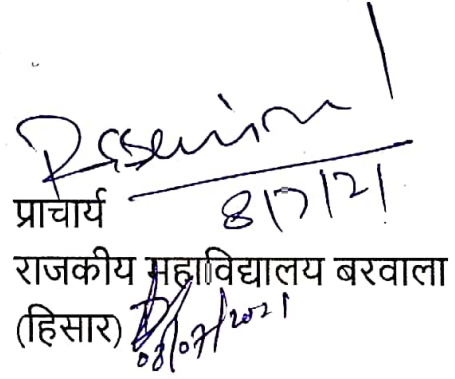 8/7/21
प्राचार्य
राजकीय महाविद्यालय बरवाला
(हिसार)
08/07/2021